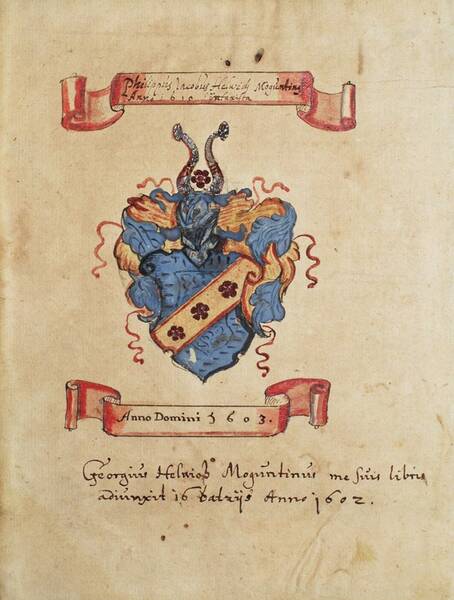 Philippus Jacobus Helwich Moguntinus
Anno 1610
Anno Domini 1603.
Georgius Helwich Moguntinus me suis libris
adiunxit 16 Batzijs Anno 1602.